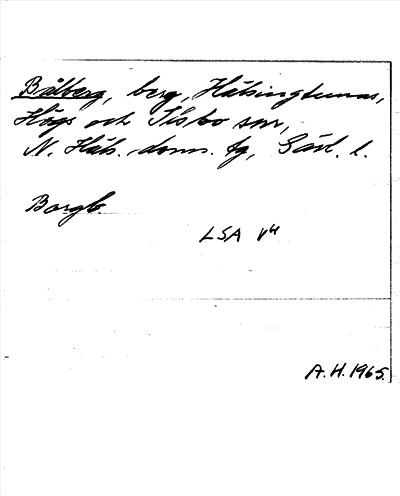 Bålberg, berg, Hälsingtunas,
Högs och Ilsbo snr,
N. Häls. doms. tg, Gävl. l.
Borgb.
LSA V4
A.H. 1965.